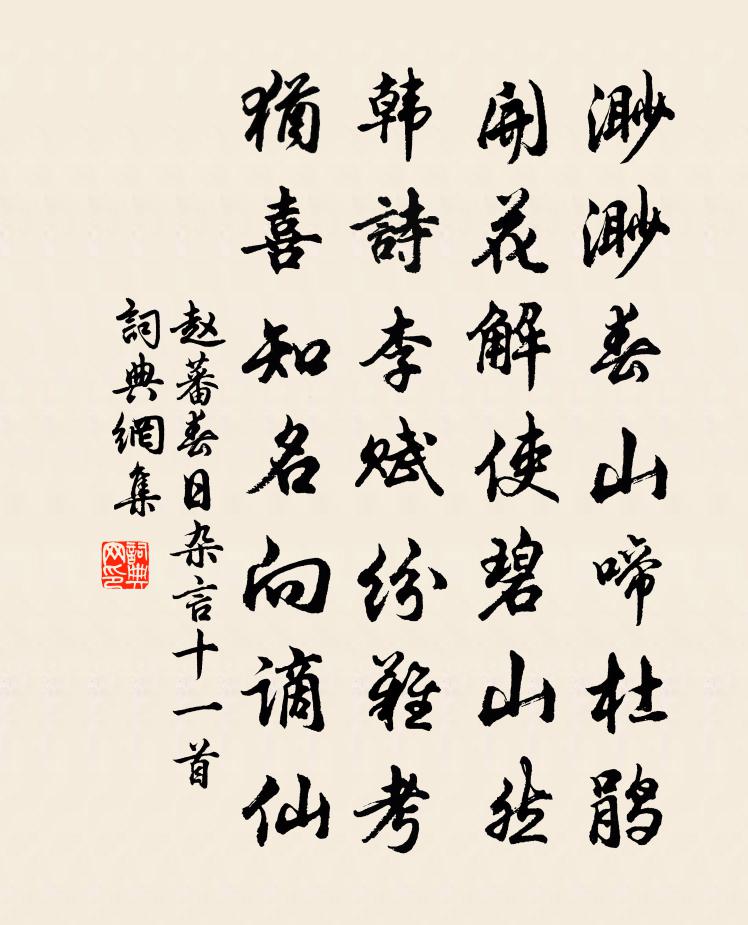 渺渺春山啼杜鹃
開花解使碧山然
韩詩李赋纷難考
猶喜知名向谪仙
赵蕃春日杂言十一首
詞典網集
詞典网印